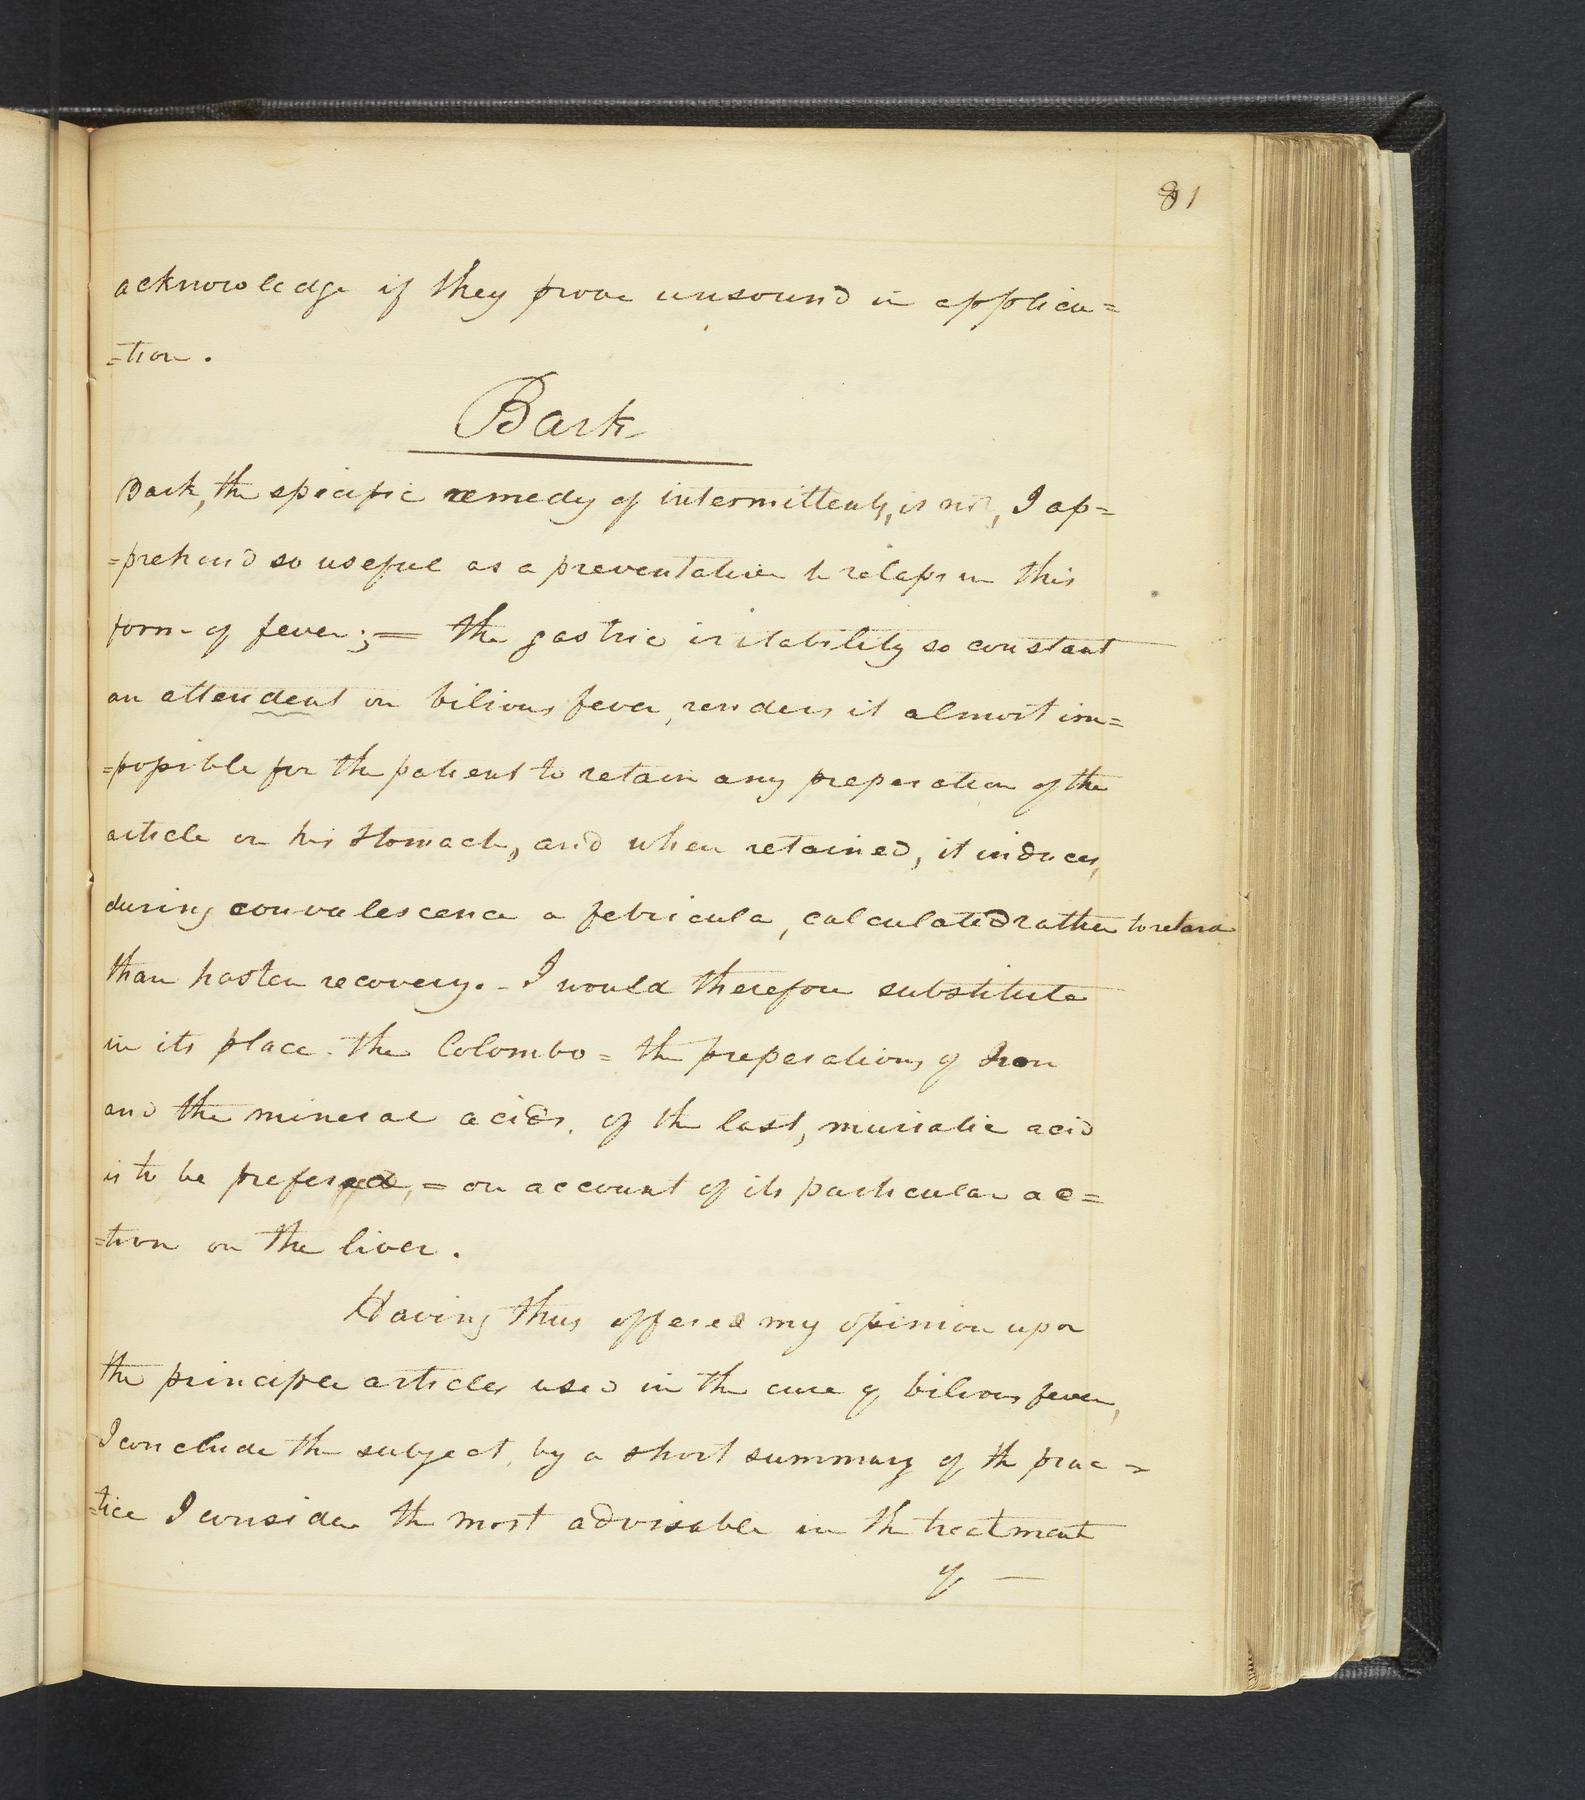 81
acknowledge if they prove unsound in applica=
=tion.
Bark
Bark, the specific remedy of intermittents, is not, I ap=
=prehend so useful as a preventative to relaps in this
form of fever;= the gastric irritability so constant
an attendent on bilious fever, renders it almost im=
=possible for the patient to retain any preparation of the
article on his stomach, and when retained, it induces,
during convalescence a febricula, calculated rather to retard
than hasten recovery. - I would therefore substitute
in its place. the Colombo = the preparations of Iron
and the mineral acids. of the last, muriatic acid
is to be prefered, = on account of its particular ac=
=tion on the liver.
Having thus offered my opinion upon
the principle articles used in the cure of bilious fever,
I conclude the subject, by a short summary of the prac=
=tice I consider the most advisable in the treatment
of —